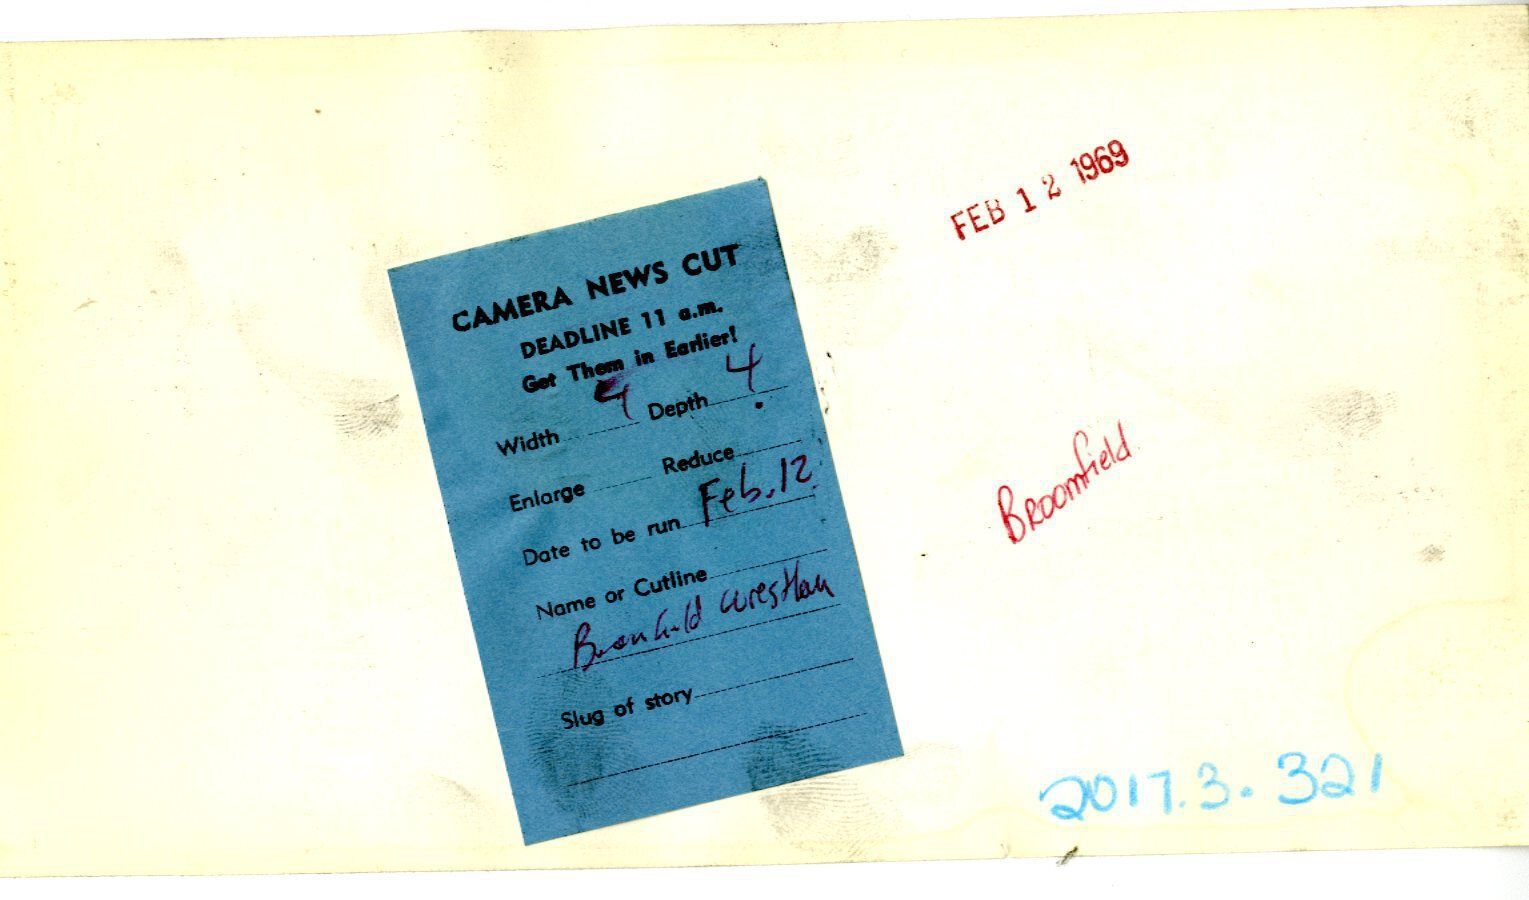 FEB 12 1969
CAMERA NEWS CUT
DEADLINE 11 a.m.
Get Them in Earlier!
Width 4 Depth 4
Enlarge Reduce
Date to be run Feb. 12
Name or Cutline
Broomfield
Slug of story
Broomfield
2017.3.321